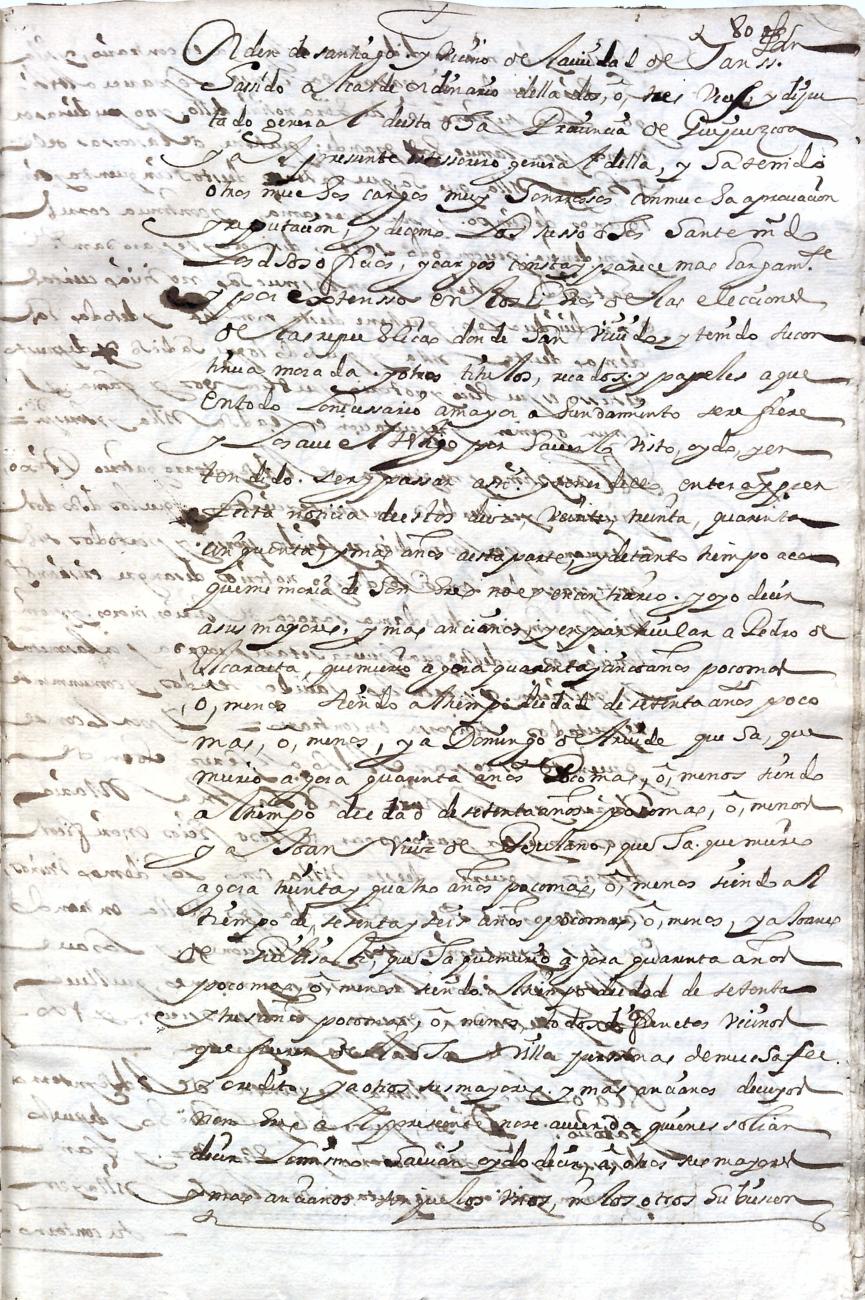 80
orden de santiago y vecino de la ciudad de San ss.
ha sido alcalde ordinario della dos, o, tres veces, y dipu
tado general desta dha Provincia de Guipuzcoa
y al presente thessorero general della, y ha tenido
otros muchos cargos muy honrrosos con mucha aprovacion
y reputacion, y de como los susso dhos han tenido
los dhos officios, y cargos consta y parece mas largamte
y por extensso en los libros de las elecciones
de las republicas donde han vivido y tenido su con
tinua morada y otros titulos, recados y papeles a que
en todo lo necessario a mayor abundamiento se refiere
y lo save el testigo por haverlo visto, oydo, y en
tendido ser y passar assi y tener dello entera y per
fecta noticia de estos diez, veinte, treinta, quarenta
cinquenta, y mas años a esta parte, y de tanto tiempo aca
que memoria de hombres no ay en contrario. y oyo decir
a sus mayores, y mas ancianos, y en particular a Pedro de
que murio agora quarenta y cinco años poco mas
o, menos siendo al tiempo de edad de setenta años poco
mas, o, menos, y a Domingo de que ha, que
murio agora quarenta años poco mas, o, menos siendo
al tiempo de edad de setenta años poco mas, o, menos
y a Joan de que ha que murio
agora treinta y quatro años poco mas, o, menos siendo al
tiempo de setenta y seis años poco mas, o, menos, y a Joanes
de que ha que murio agora quarenta años
poco mas, o, menos siendo al tiempo de edad de setenta
y tres años poco mas, o, menos todos vecinos
que fueron de la dha villa personas de mucha fee
y credito, y a otros sus mayores y mas ancianos de cuyos
nombres al presente no se acuerda quienes solian
decir lo mismo havian oydo decir, a, otros sus mayores
y mas ancianos sin que los unos, ni los otros hubiesen